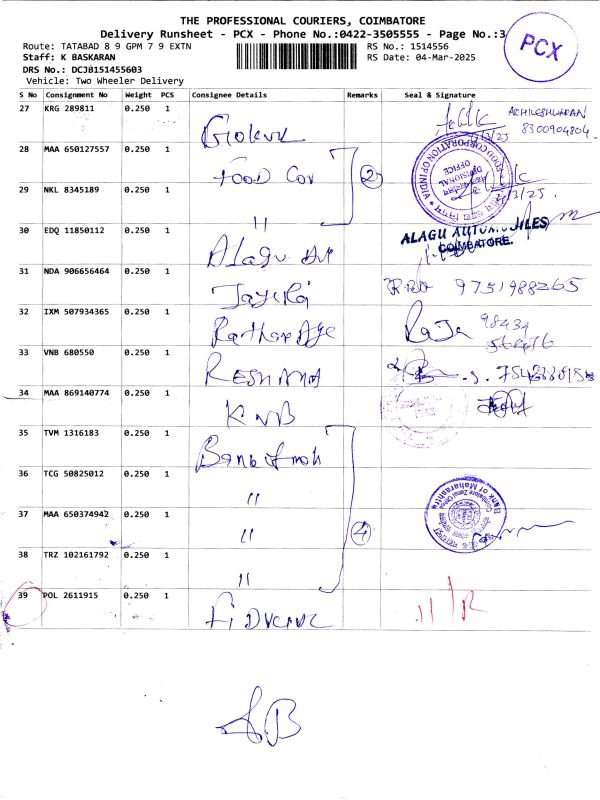 THE PROFESSIONAL COURIERS, COIMBATORE
Delivery Runsheet - PCX - Phone No.:0422-3505555 - Page No.:3
PCX
Route: TATABAD 8 9 GPM 7 9 EXTN
RS No.: 1514556
Staff: K BASKARAN
RS Date: 04-Mar-2025
DRS No.: DCJB151455603
Vehicle: Two Wheeler Delivery
S No Consignment No Weight PCS Consignee Details Remarks Seal & Signature
27 KRG 289811 0.250 1
8300904804
28 MAA 650127557 0.250 1 Food Cor 2
FOOD CORPORATION OF INDIA
DIVISIONAL OFFICE
29 NKL 8345189 0.250 1 "
30 EDQ 11850112 0.250 1 Alagu
ALAGU AUTOMOBILES
COIMBATORE.
31 NDA 906656464 0.250 1 9751988265
32 IXM 507934365 0.250 1 Raja 98434
33 VNB 680550 0.250 1 RESHMA
34 MAA 869140774 0.250 1 KVB
35 TVM 1316183 0.250 1 Bank of mah
36 TCG 50825012 0.250 1 "
37 MAA 650374942 0.250 1 " 4
Bank of Maharashtra
Coimbatore Zonal Office
38 TRZ 102161792 0.250 1 "
39 POL 2611915 0.250 1